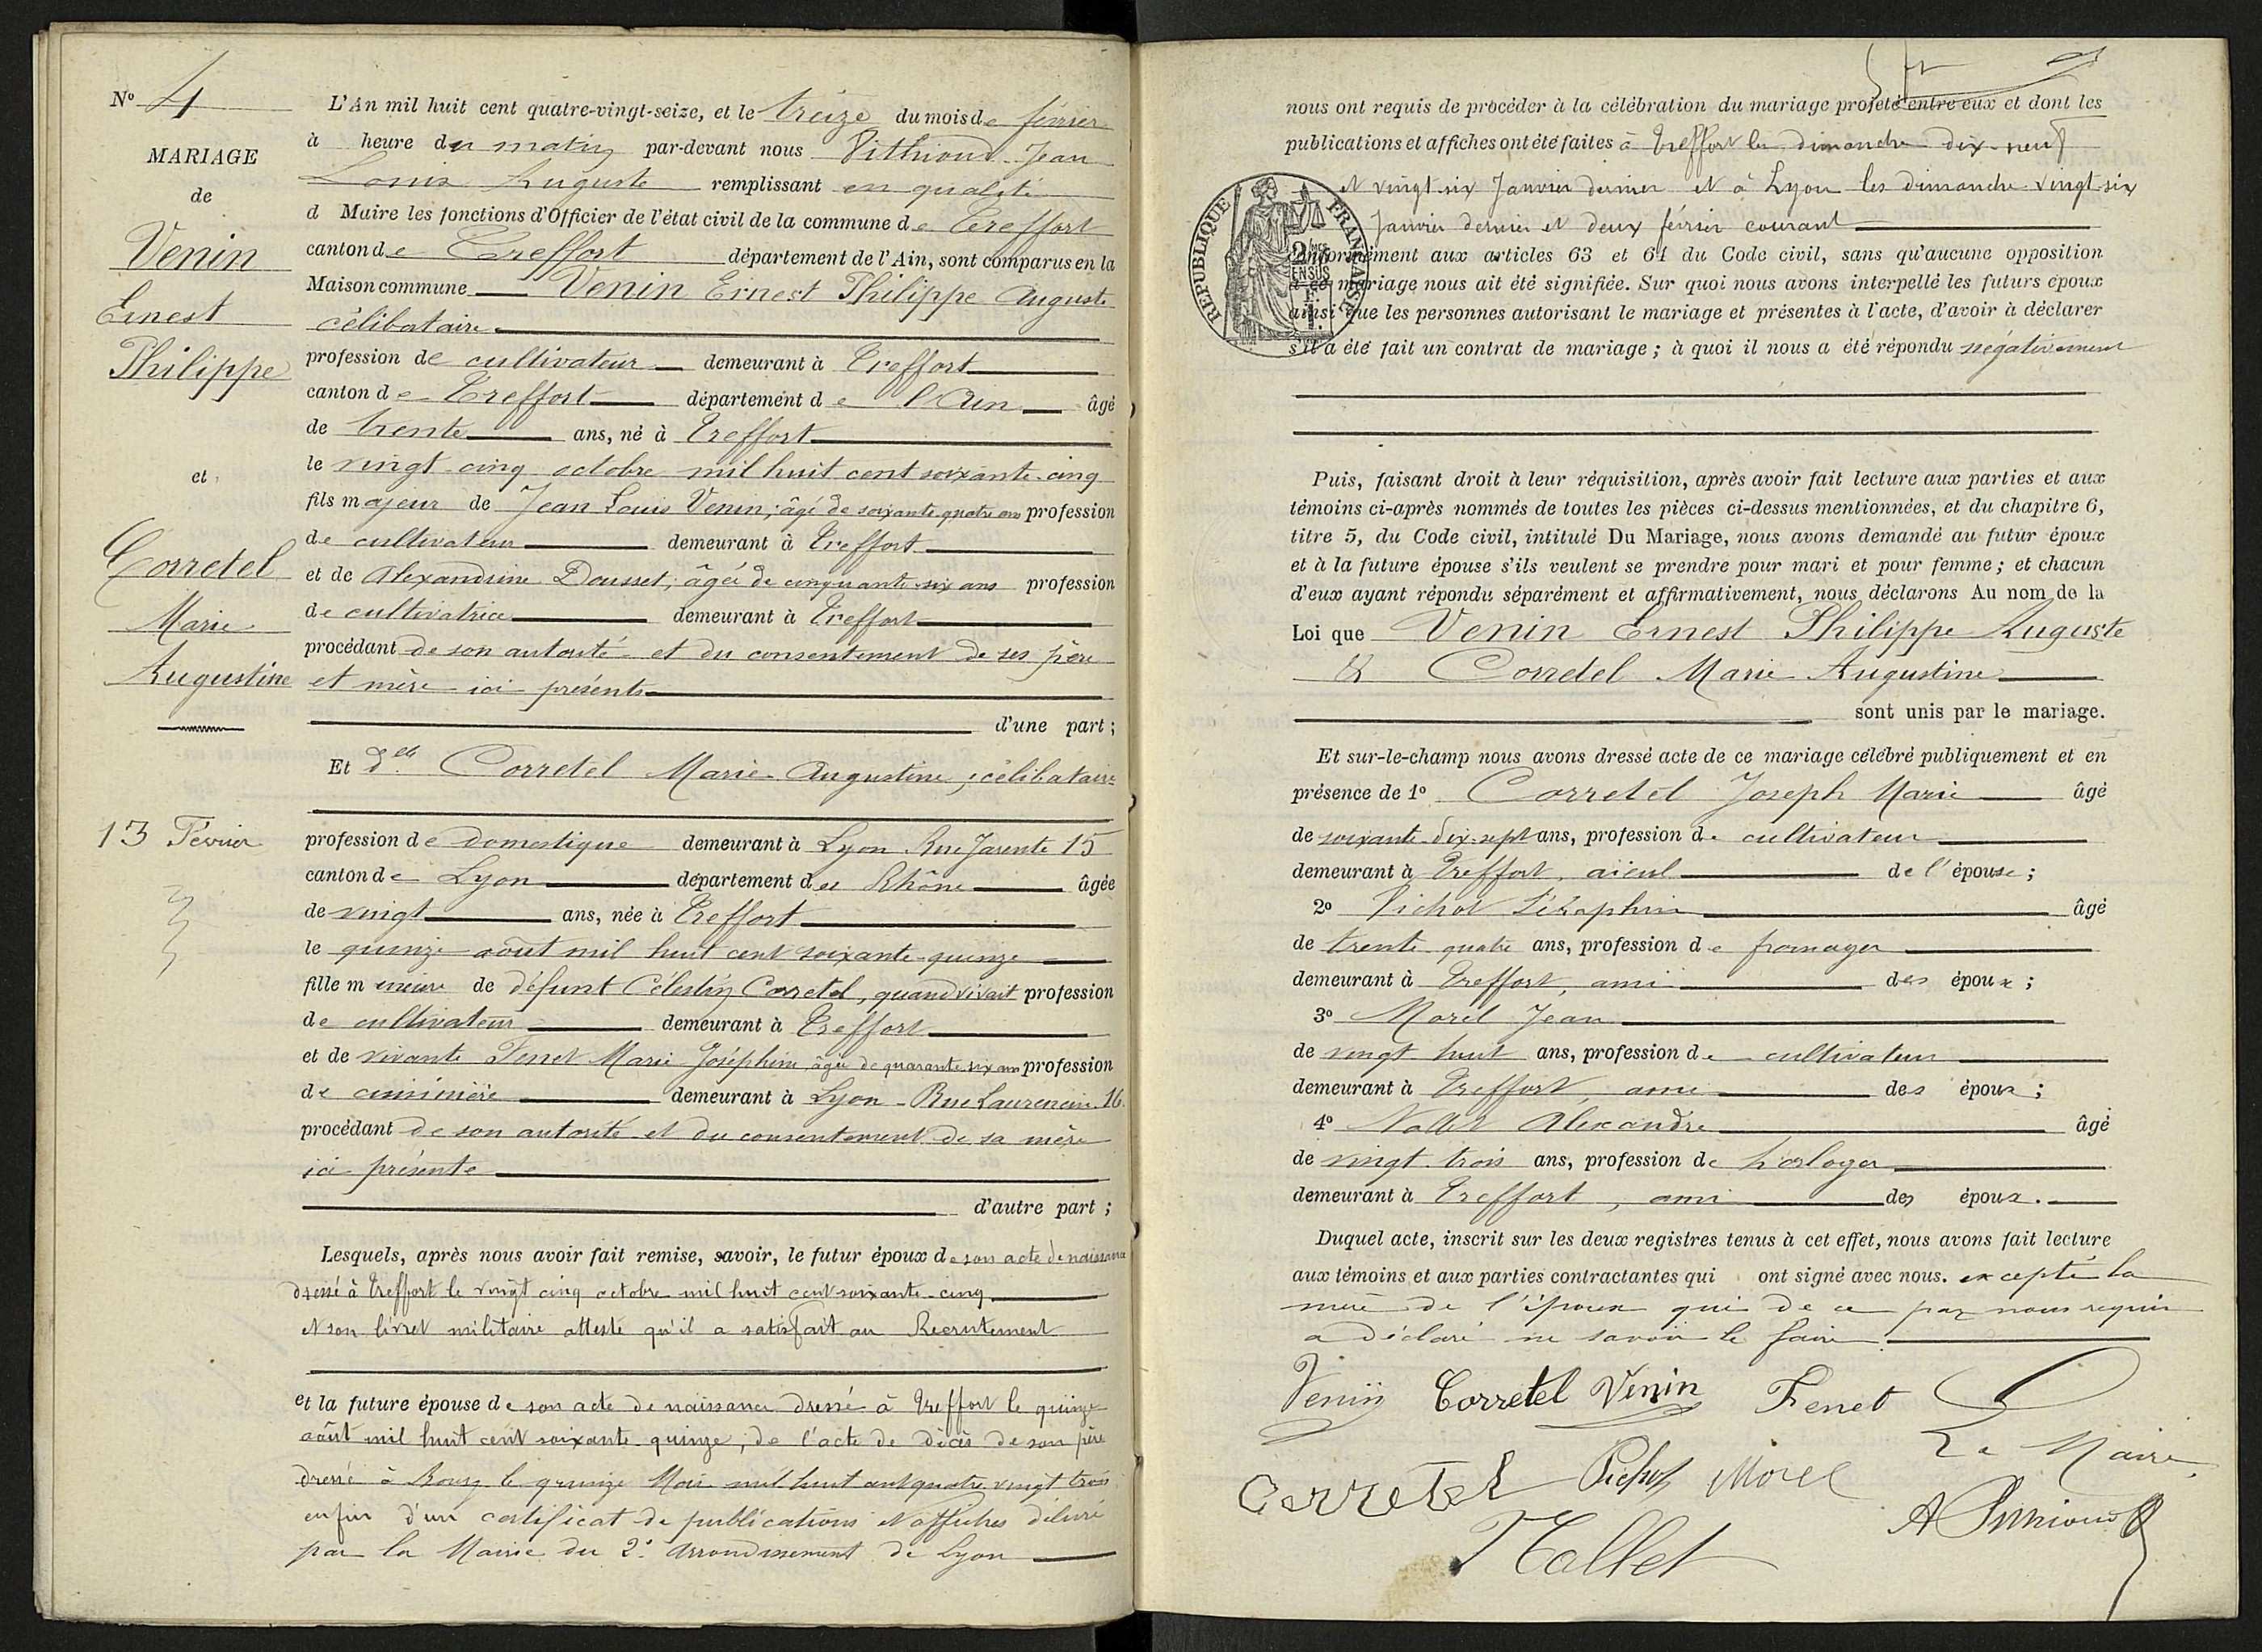 N° 4
MARIAGE
de
Venin
Ernest
Philippe
et
Corretel
Marie
Augustine
13 Février
L'An mil huit cent quatre-vingt-seize, et le treize du mois de février
à heure du matin par-devant nous Pithioud Jean
Louis Auguste remplissant en qualité
d Maire les fonctions d'Officier de l'état civil de la commune de Treffort
canton de Treffort département de l'Ain, sont comparus en la
Maison commune Venin Ernest Philippe Auguste
célibataire
profession de cultivateur demeurant à Treffort
canton de Treffort département de l'Ain âgé
de trente ans, né à Treffort
le vingt-cinq octobre mil huit cent soixante-cinq
fils majeur de Jean Louis Venin, âgé de soixante quatre ans profession
de cultivateur demeurant à Treffort
et de Alexandrine Dousset, âgée de cinquante-six ans profession
de cultivatrice demeurant à Treffort
procédant de son autorité et du consentement de ses père
et mère ici présents
d'une part ;
Et dlle Corretel Marie Augustine, célibataire
profession de domestique demeurant à Lyon Rue Jarente 15
canton de Lyon département du Rhône âgée
de vingt ans, née à Treffort
le quinze août mil huit cent soixante-quinze
fille mineure de défunt Célestin Corretel, quand vivait profession
de cultivateur demeurant à Treffort
et de vivante Fenet Marie Joséphine âgée de quarante six ans profession
de cuisinière demeurant à Lyon - Rue Laurencin 16.
procédant de son autorité et du consentement de sa mère
ici présente
d'autre part ;
Lesquels, après nous avoir fait remise, savoir, le futur époux de son acte de naissance
dressé à Treffort le vingt cinq octobre mil huit cent soixante-cinq
et son livret militaire atteste qu'il a satisfait au Recrutement
et la future épouse de son acte de naissance dressé à Treffort le quinze
août mil huit cent soixante-quinze, de l'acte de décès de son père
dressé à Bourg le quinze Mai mil huit cent quatre vingt trois
enfin d'un certificat de publications et affiches délivré
par la Mairie du 2e arrondissement de Lyon
nous ont requis de procéder à la célébration du mariage projeté entre eux et dont les
publications et affiches ont été faites à Treffort les dimanche dix-neuf
et vingt-six Janvier dernier et à Lyon les dimanche vingt-six
Janvier dernier et deux février courant
REPUBLIQUE FRANÇAISE
conformément aux articles 63 et 64 du Code civil, sans qu'aucune opposition
à ce mariage nous ait été signifiée. Sur quoi nous avons interpellé les futurs époux
ainsi que les personnes autorisant le mariage et présentes à l'acte, d'avoir à déclarer
s'il a été fait un contrat de mariage ; à quoi il nous a été répondu négativement
Puis, faisant droit à leur réquisition, après avoir fait lecture aux parties et aux
témoins ci-après nommés de toutes les pièces ci-dessus mentionnées, et du chapitre 6,
titre 5, du Code civil, intitulé Du Mariage, nous avons demandé au futur époux
et à la future épouse s'ils veulent se prendre pour mari et pour femme ; et chacun
d'eux ayant répondu séparément et affirmativement, nous déclarons Au nom de la
Loi que Venin Ernest Philippe Auguste
& Corretel Marie Augustine
sont unis par le mariage.
Et sur-le-champ nous avons dressé acte de ce mariage célébré publiquement et en
présence de 1° Corretel Joseph Marie âgé
de soixante-dix-sept ans, profession de cultivateur
demeurant à Treffort, aieul de l'épouse ;
2° Pichot Séraphin âgé
de trente-quatre ans, profession de fromager
demeurant à Treffort, ami des époux ;
3° Morel Jean
de vingt huit ans, profession de cultivateur
demeurant à Treffort, ami des époux ;
4° Nallet Alexandre âgé
de vingt-trois ans, profession de horloger
demeurant à Treffort, ami des époux.
Duquel acte, inscrit sur les deux registres tenus à cet effet, nous avons fait lecture
aux témoins et aux parties contractantes qui ont signé avec nous. excepté la
mère de l'époux qui de ce par nous requis
a déclaré ne savoir le faire
Venin Corretel Venin Fenet
Le Maire,
Corretel Pichot Morel
Nallet